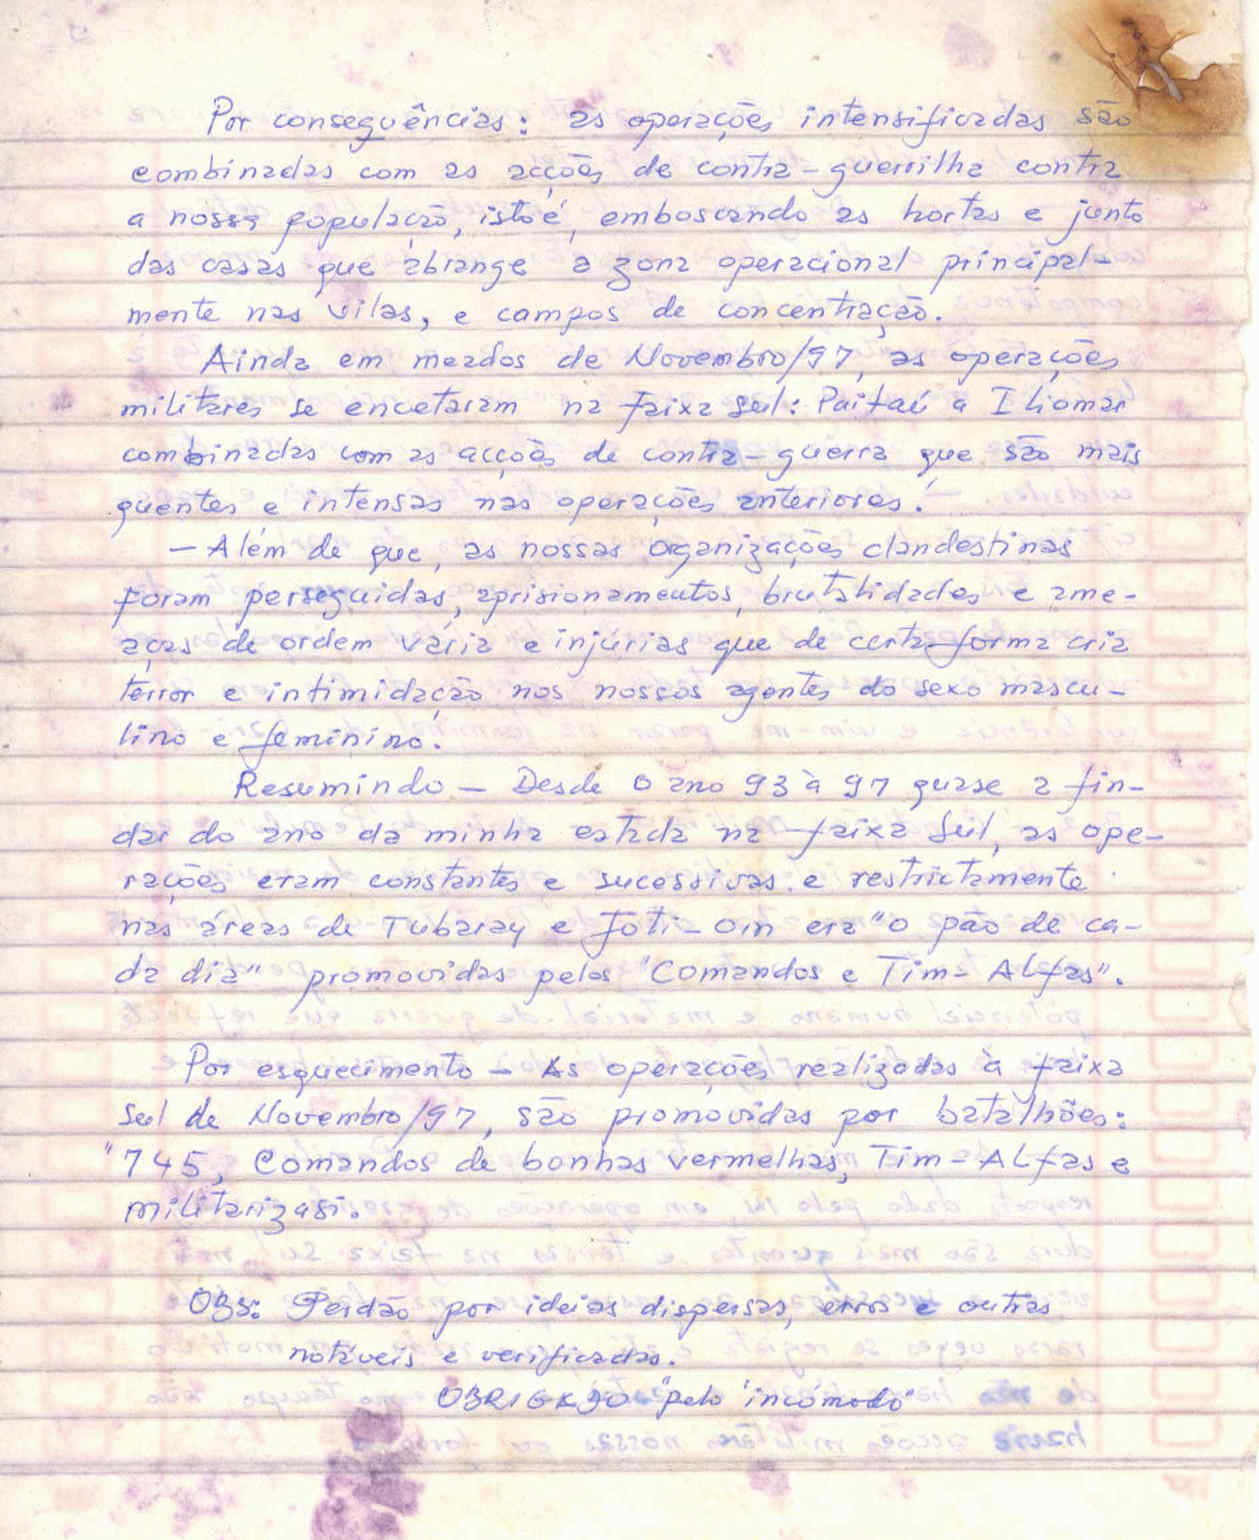 Por consequências: as operações intensificadas são
combinadas com as acções de contra-guerrilha contra
a nossa população, isto é, emboscando as hortas e junto
das casas que abrange a zona operacional principal-
mente nas vilas, e campos de concentração.
Ainda em meados de Novembro/97, as operações
militares se encetaram na faixa Sul: Paitaú a Iliomar
combinadas com as acções de contra-guerra que são mais
quentes e intensas nas operações anteriores.
- Além de que, as nossas organizações clandestinas
foram perseguidas, aprisionamentos, brutalidades e ame-
aças de ordem vária e injúrias que de certa forma cria
terror e intimidação nos nossos agentes do sexo mascu-
lino e feminino.
Resumindo - Desde o ano 93 à 97 quase a fin-
dar do ano da minha estada na faixa Sul, as ope-
rações eram constantes e sucessivas e restrictamente
nas áreas de Tubaray e Foti-Oin era "o pão de ca-
da dia" promovidas pelos "Comandos e Tim-Alfas".
Por esquecimento - As operações realizadas à faixa
Sul de Novembro/97, são promovidas por batalhões:
"745, Comandos de bonhas vermelhas, Tim-Alfas e
militarizasi.
OBS: Perdão por ideias dispersas, erros e outras
notáveis e verificadas.
OBRIGADO "pelo incómodo"